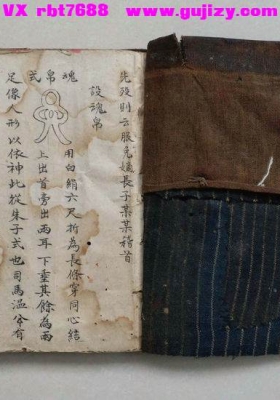 VX rbt7688 www.gujizy.com
先歿則云服兄孀長子某某稽首
設魂帛
魂帛式
用白絹六尺折為長條穿同心結
上出首旁出兩耳下垂其餘為兩
足像人形以依神此從朱子式也司馬溫公有